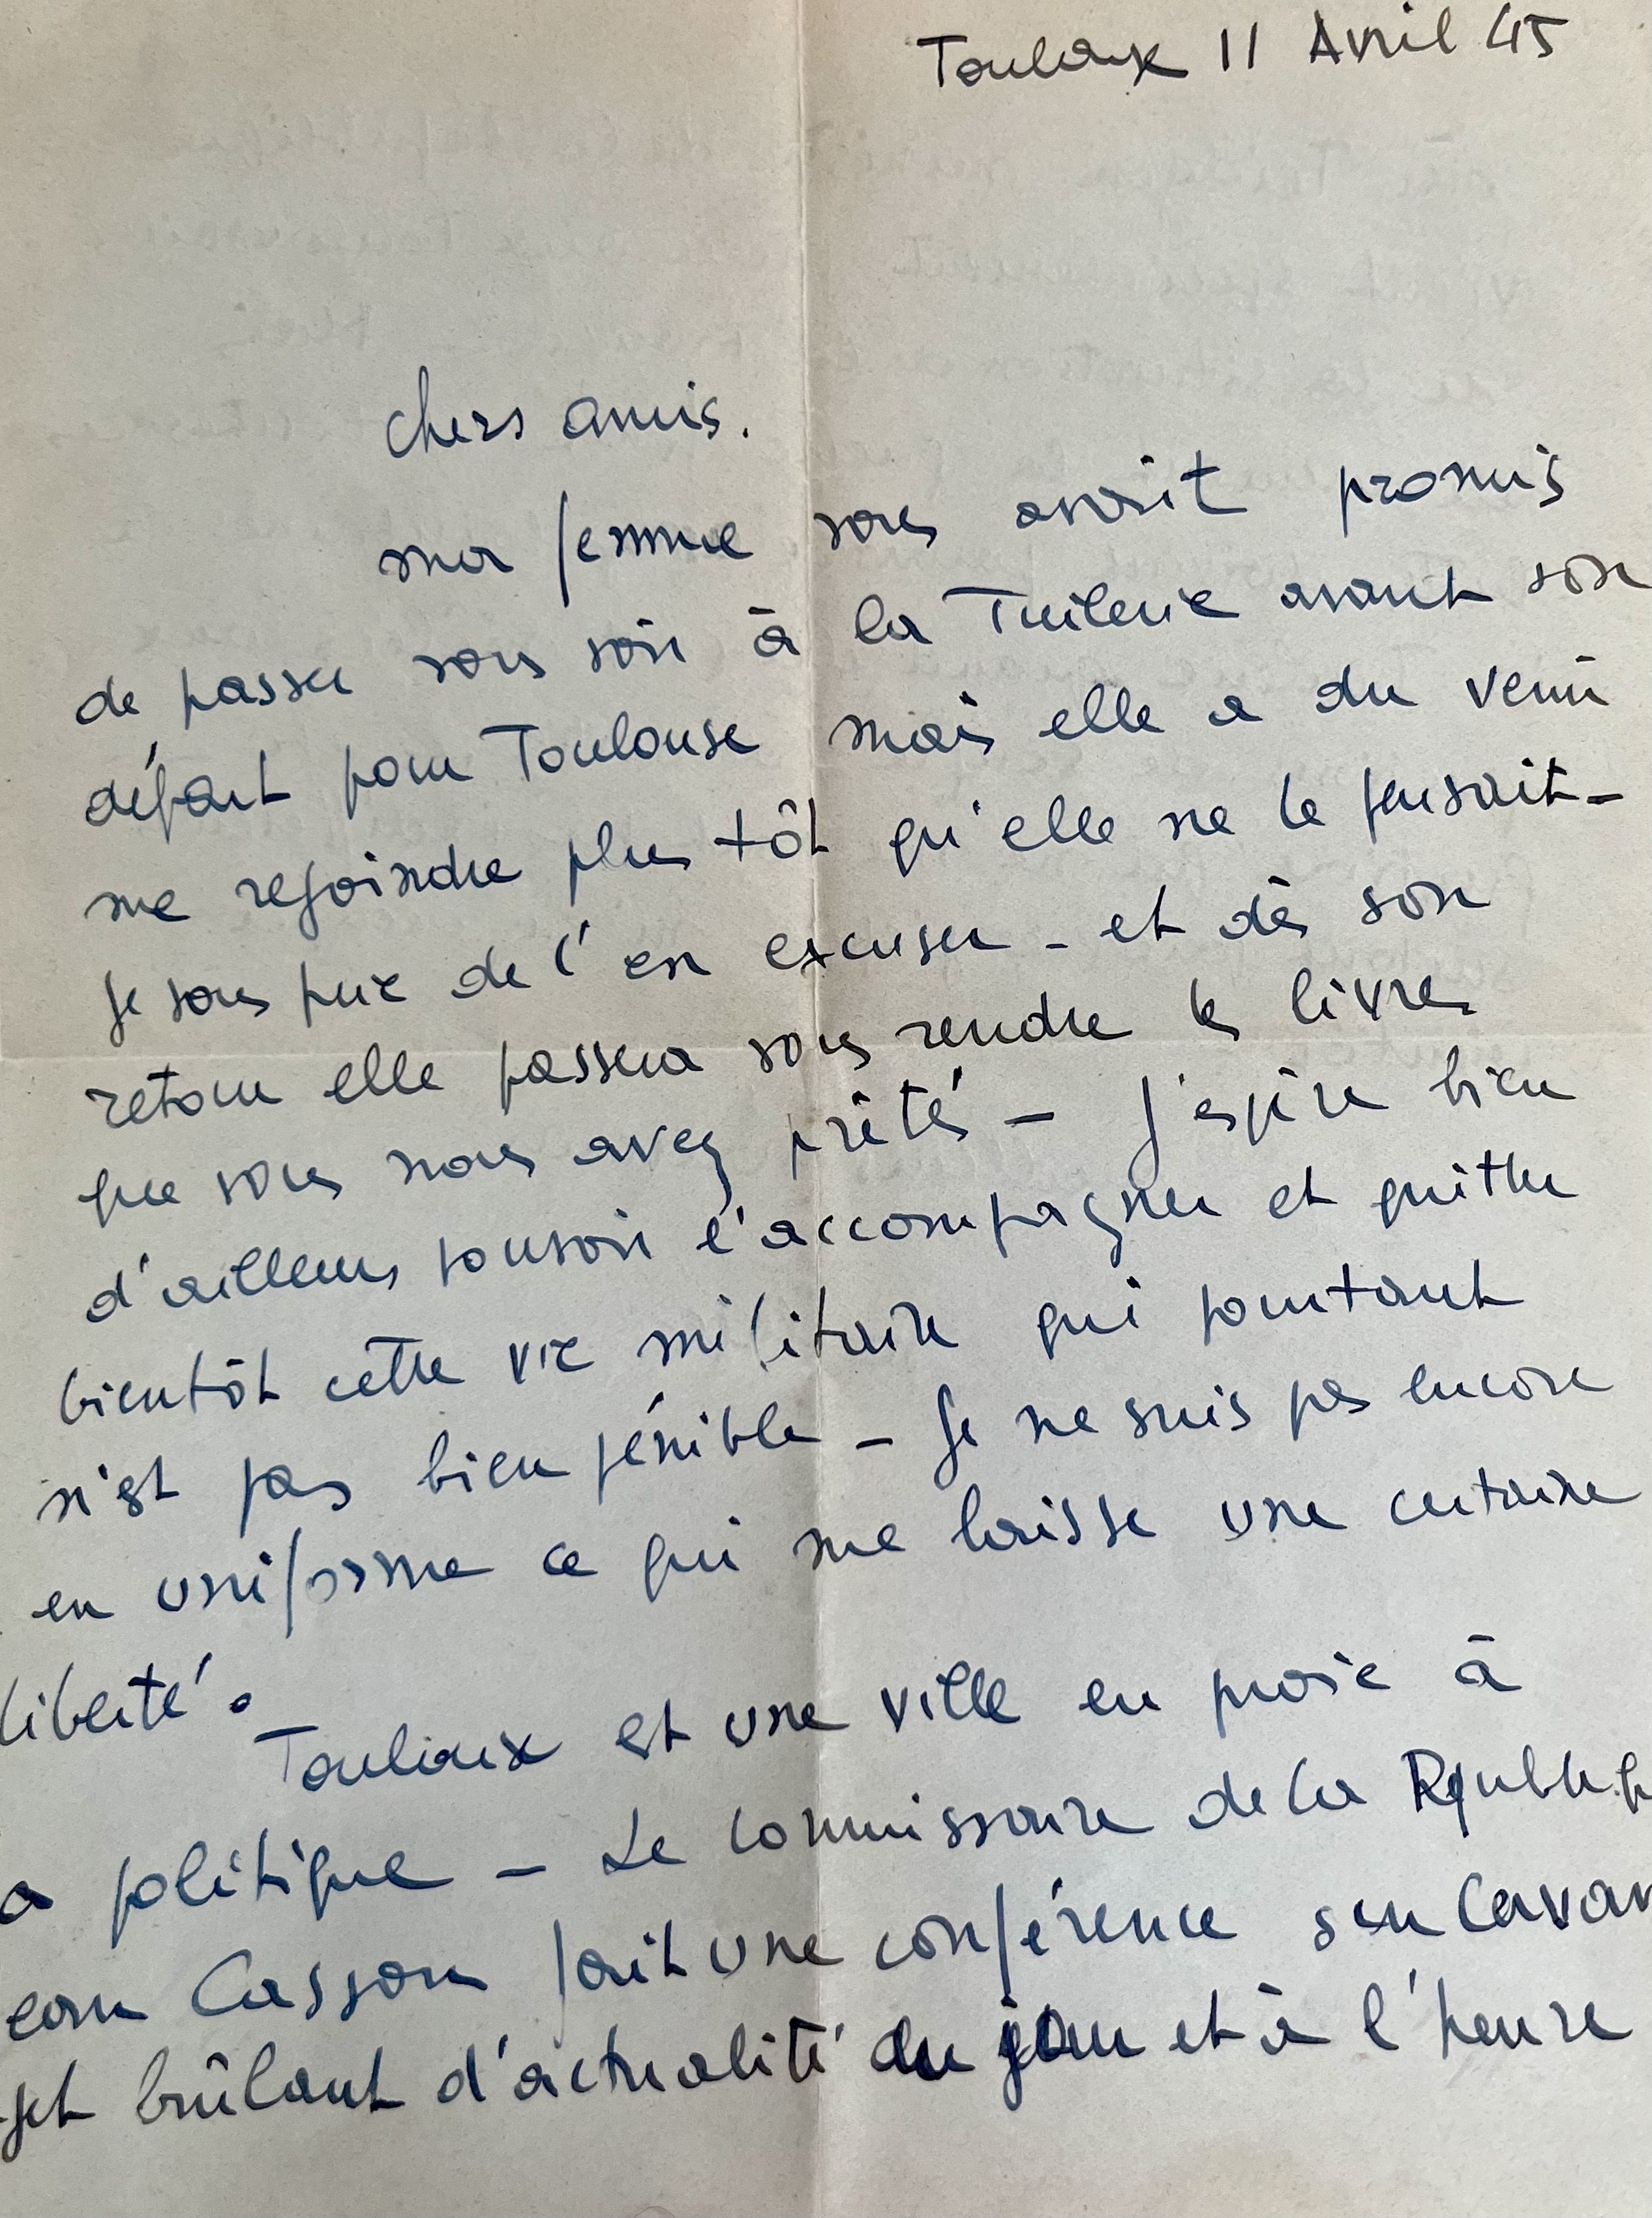 Toulouse 11 Avril 45
Chers amis.
ma femme vous avait promis
de passer vous voir à la Tuilerie avant son
départ pour Toulouse mais elle a du venir
me rejoindre plus tôt qu'elle ne le pensait -
je vous prie de l'en excuser - et dès son
retour elle passera vous rendre les livres
que vous nous avez prêtés - J'espère bien
d'ailleurs pouvoir l'accompagner et quitter
bientôt cette vie militaire qui pourtant
n'est pas bien pénible - Je ne suis pas encore
en uniforme ce qui me laisse une certaine
liberté.
Toulouse est une ville en proie à
a politique - Le Commissaire de la
ean Cassou fait une conférence sur
jet brûlant d'actualité du jour et à l'heure